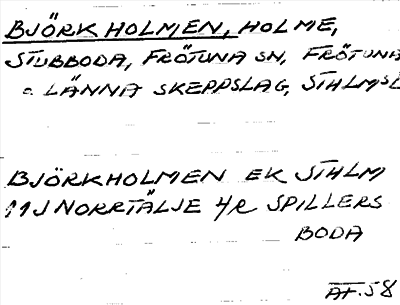 BJÖRKHOLMEN, HOLME,
STUBBODA, FRÖTUNA SN, FRÖTUNA
O LÄNNA SKEPPSLAG, STHLMSL
BJÖRKHOLMEN EK STHLM
11J NORRTÄLJE 4R SPILLERS
BODA
AF. 58